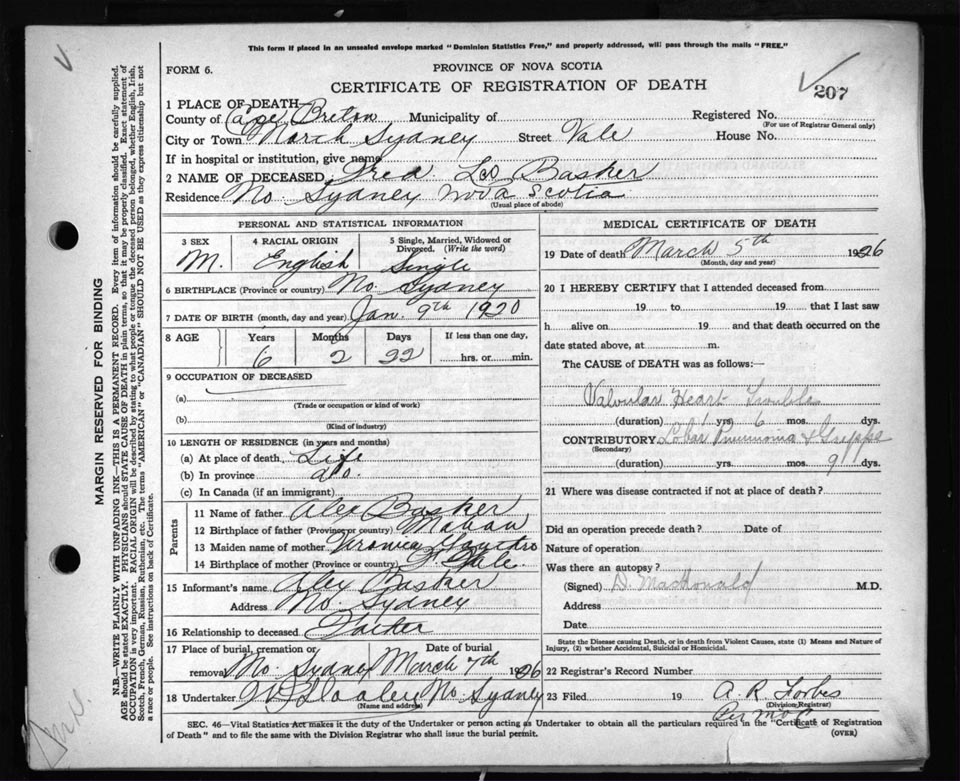 This form if placed in an unsealed envelope marked "Dominion Statistics Free," and properly addressed, will pass through the mails "FREE."
FORM 6.
PROVINCE OF NOVA SCOTIA
CERTIFICATE OF REGISTRATION OF DEATH
207
1 PLACE OF DEATH—
County of Cape Breton Municipality of Registered No.
(For use of Registrar General only)
City or Town North Sydney Street Vale House No.
If in hospital or institution, give name
2 NAME OF DECEASED Fred Leo Basker
Residence No. Sydney Nova Scotia
(Usual place of abode)
PERSONAL AND STATISTICAL INFORMATION
3 SEX 4 RACIAL ORIGIN 5 Single, Married, Widowed or Divorced. (Write the word)
M. English Single
6 BIRTHPLACE (Province or country) No. Sydney
7 DATE OF BIRTH (month, day and year) Jan. 9th 1920
8 AGE Years Months Days If less than one day,
6 2 22 hrs. or min.
9 OCCUPATION OF DECEASED
(a)
(Trade or occupation or kind of work)
(b)
(Kind of industry)
10 LENGTH OF RESIDENCE (in years and months)
(a) At place of death Life
(b) In province do.
(c) In Canada (if an immigrant)
Parents
11 Name of father Alex Basker
12 Birthplace of father (Province or country) Mabou
13 Maiden name of mother Veronica
14 Birthplace of mother (Province or country)
15 Informant's name Alex Basker
Address No. Sydney
16 Relationship to deceased Father
17 Place of burial, cremation or removal Date of burial
No. Sydney March 7th 1926
18 Undertaker No. Sydney
(Name and address)
MEDICAL CERTIFICATE OF DEATH
19 Date of death March 5th 1926
(Month, day and year)
20 I HEREBY CERTIFY that I attended deceased from
19 to 19 that I last saw
h alive on 19 and that death occurred on the
date stated above, at m.
The CAUSE of DEATH was as follows:—
Valvular Heart Trouble
(duration) 1 yrs. 6 mos. dys.
CONTRIBUTORY Lobar Pneumonia & Grippe
(Secondary)
(duration) yrs. mos. 9 dys.
21 Where was disease contracted if not at place of death?
Did an operation precede death? Date of
Nature of operation
Was there an autopsy?
(Signed) D. MacDonald M.D.
Address
Date
State the Disease causing Death, or in death from Violent Causes, state (1) Means and Nature of Injury, (2) whether Accidental, Suicidal or Homicidal.
22 Registrar's Record Number
23 Filed 19 A R Forbes
(Division Registrar)
SEC. 46—Vital Statistics Act makes it the duty of the Undertaker or person acting as Undertaker to obtain all the particulars required in the "Certificate of Registration
of Death" and to file the same with the Division Registrar who shall issue the burial permit.
(OVER)
MARGIN RESERVED FOR BINDING
N.B.—WRITE PLAINLY WITH UNFADING INK—THIS IS A PERMANENT RECORD. Every item of information should be carefully supplied.
AGE should be stated EXACTLY. PHYSICIANS should STATE CAUSE OF DEATH in plain terms, so that it may be properly classified. Exact statement of
OCCUPATION is very important. RACIAL ORIGIN will be described by stating to what people or tongue the deceased person belonged, whether English, Irish,
Scotch, French, German, Russian, Ruthenian, etc. The terms "AMERICAN" or "CANADIAN" SHOULD NOT BE USED as they express citizenship but not
a race or people. See instructions on back of Certificate.